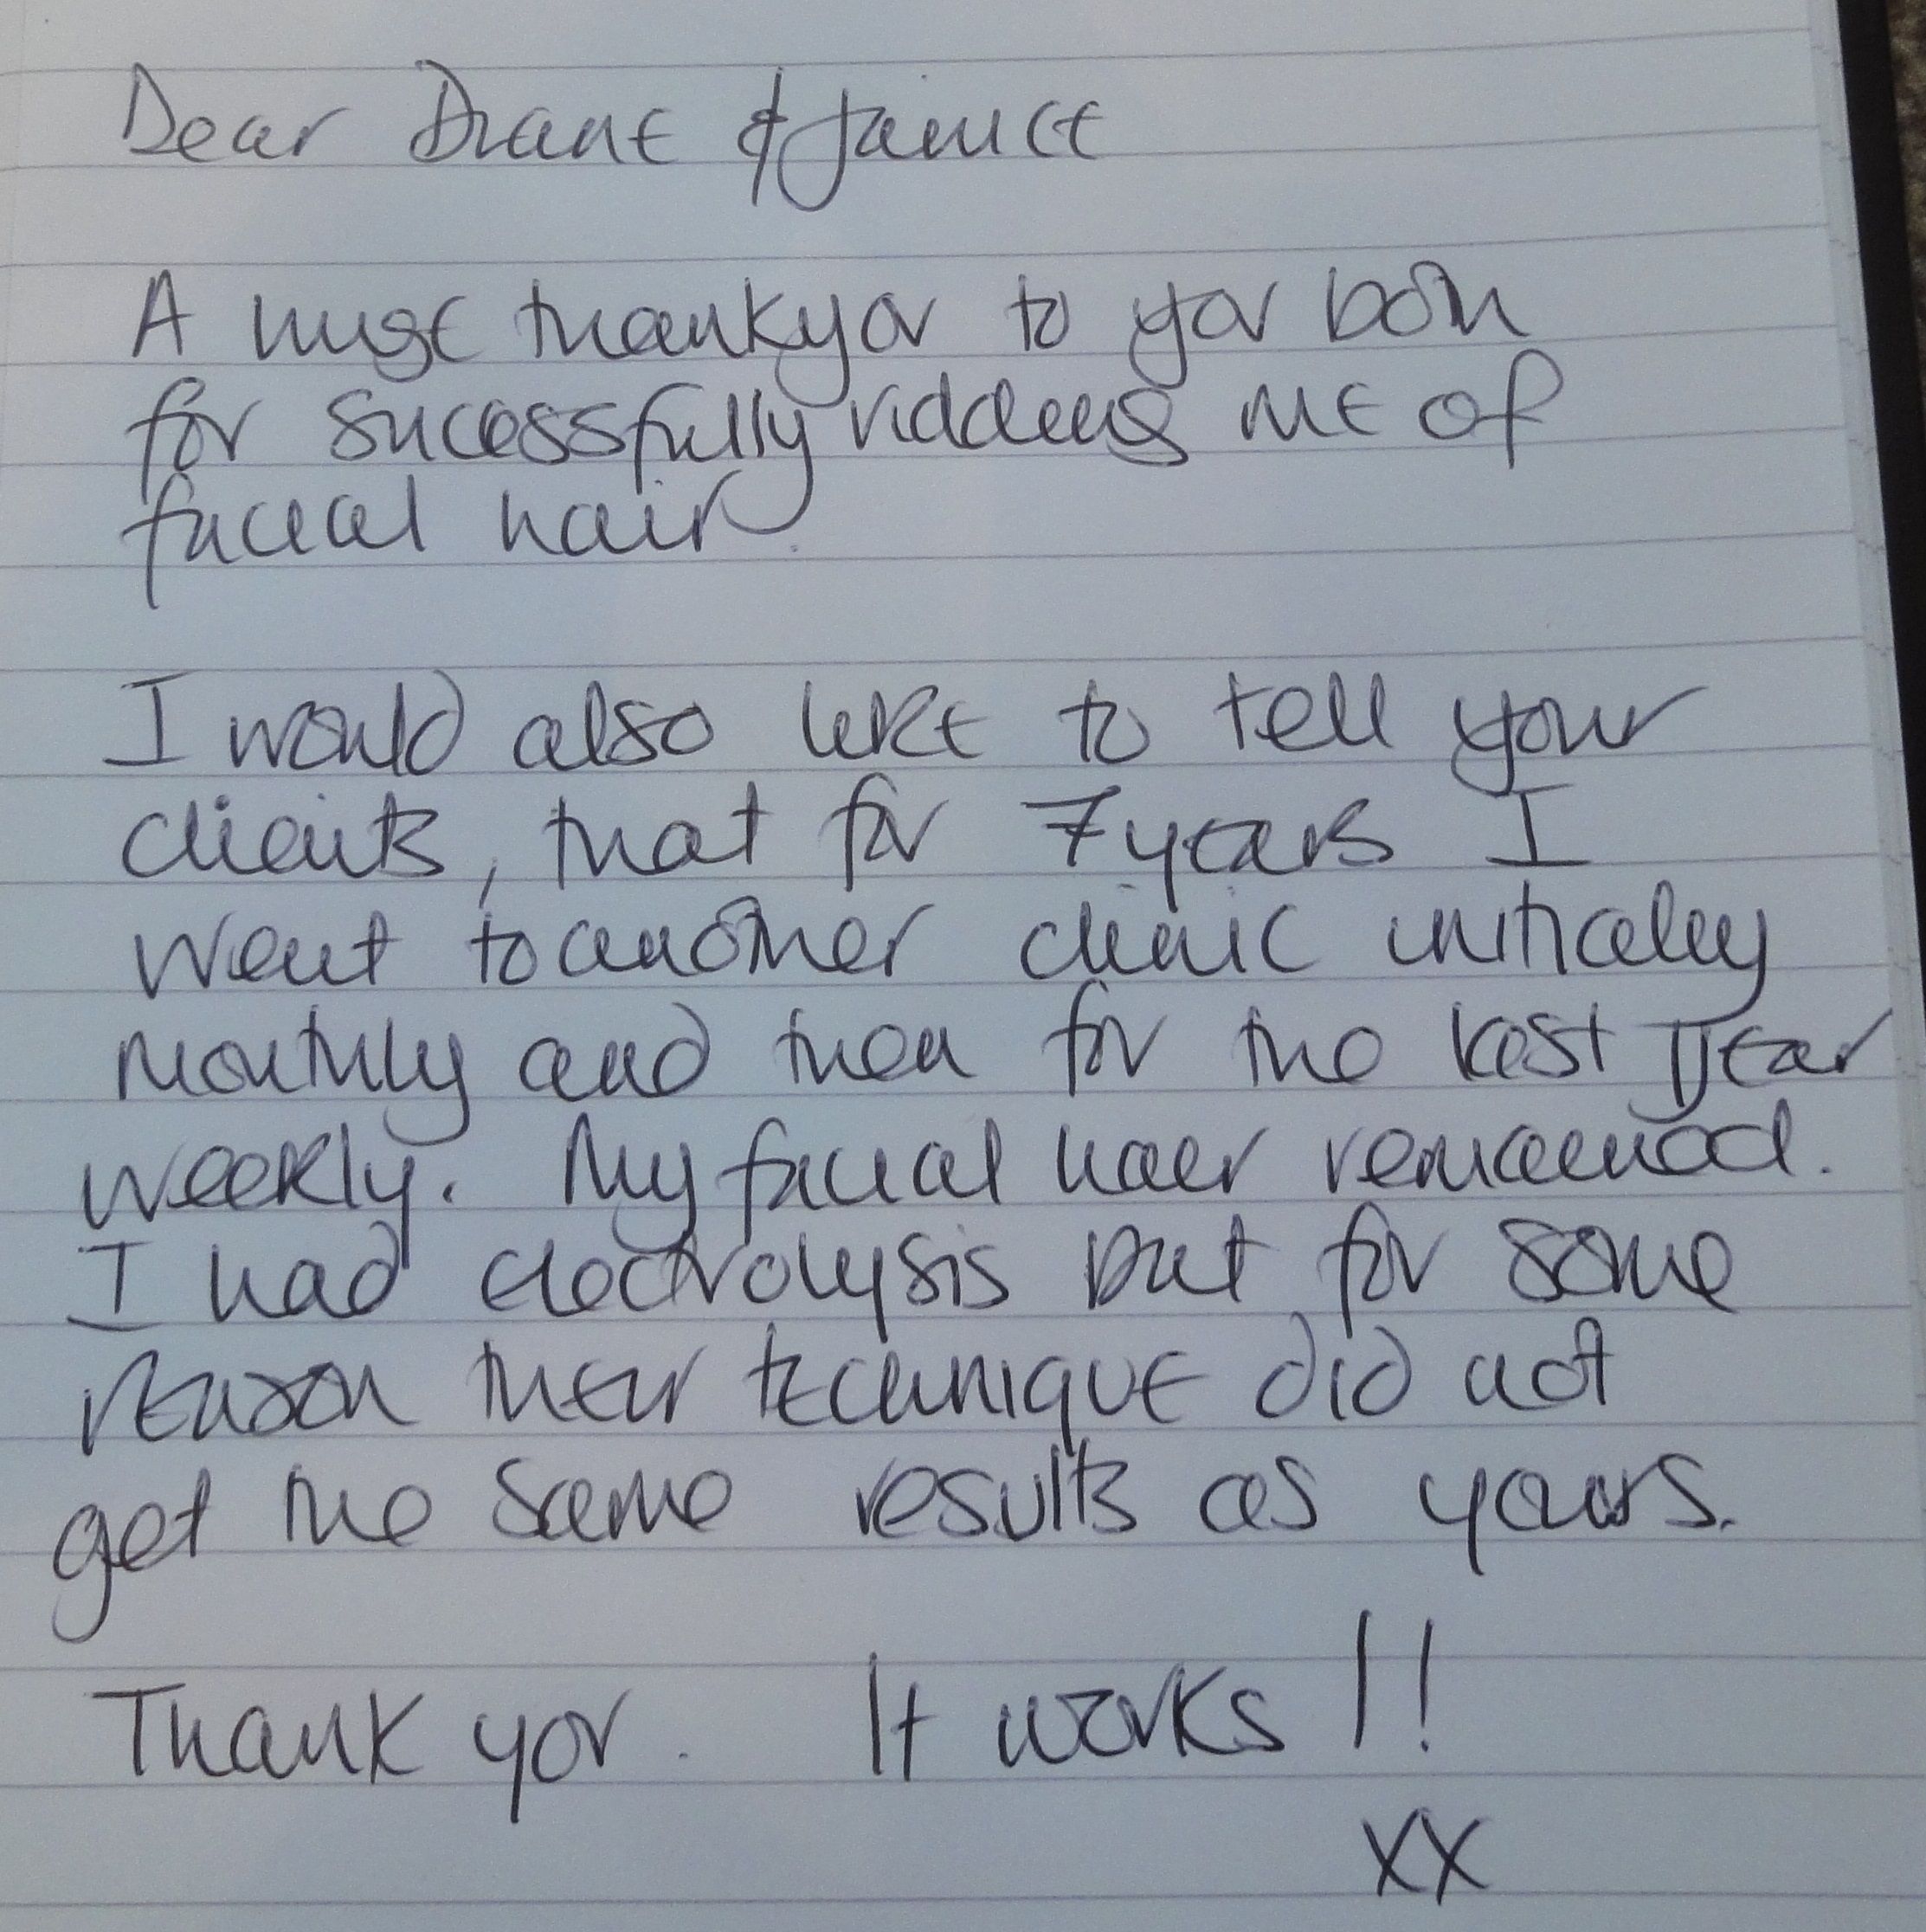 Dear Diane & Janice
A huge thankyou to you both
for sucessfully ridding me of
facial hair.
I would also like to tell your
clients, that for 7 years I
went to another clinic initially
monthly and then for the last year
weekly. My facial hair remained.
I had electrolysis but for some
reason their technique did not
get the same results as yours.
Thank you. It works !!
XX